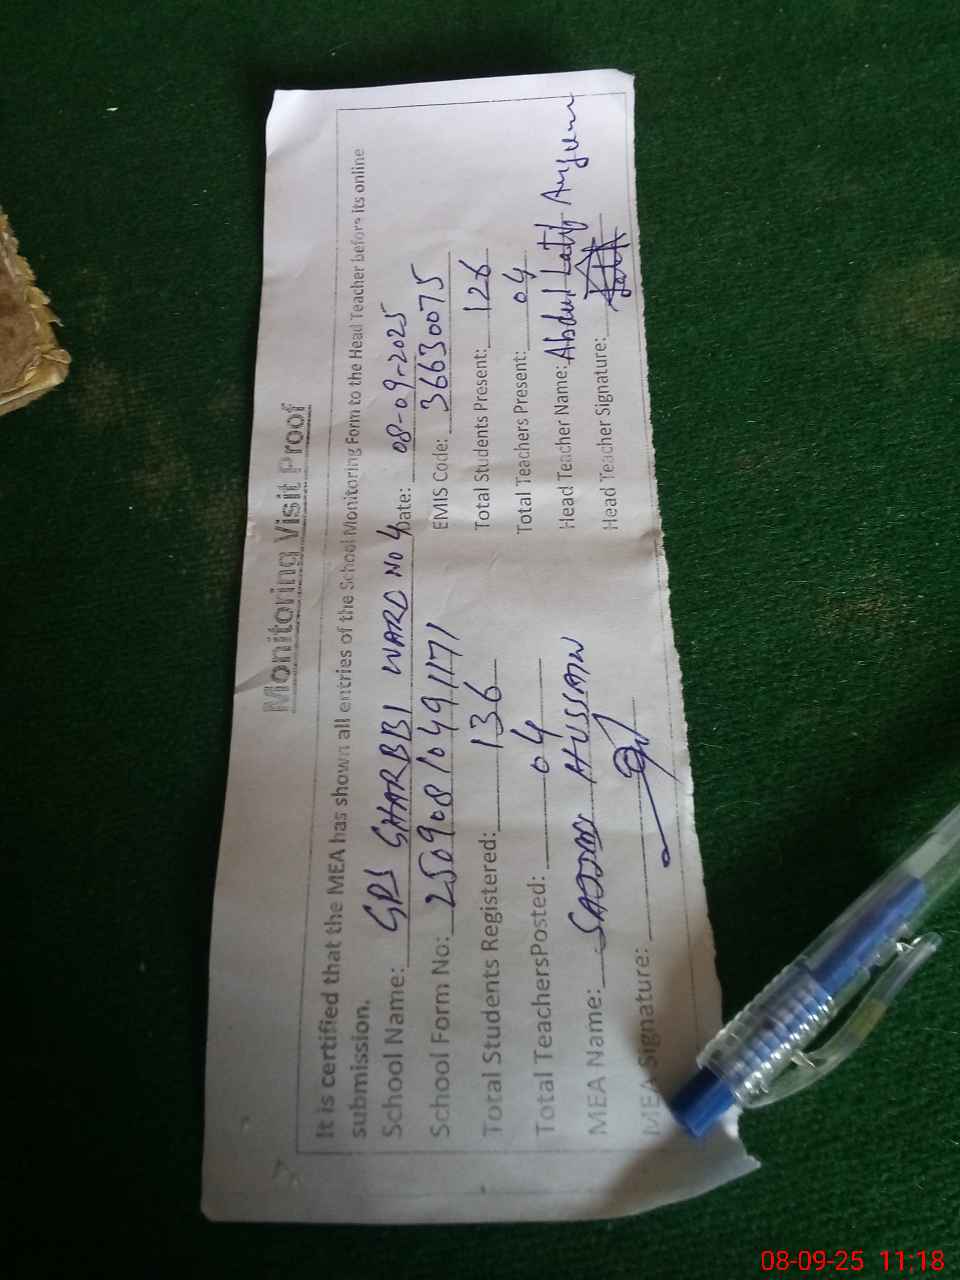 Monitoring Visit Proof
It is certified that the MEA has shown all entries of the School Monitoring Form to the Head Teacher before its online
submission.
School Name: GPS GHARBBI WARD NO 4 Date: 08-09-2025
School Form No: 25090810491171 EMIS Code: 36630075
Total Students Registered: 136 Total Students Present: 126
Total TeachersPosted: 04 Total Teachers Present: 04
MEA Name: HUSSAIN Head Teacher Name: Abdul Latif Anjum
MEA Signature: Head Teacher Signature:
08-09-25 11:18